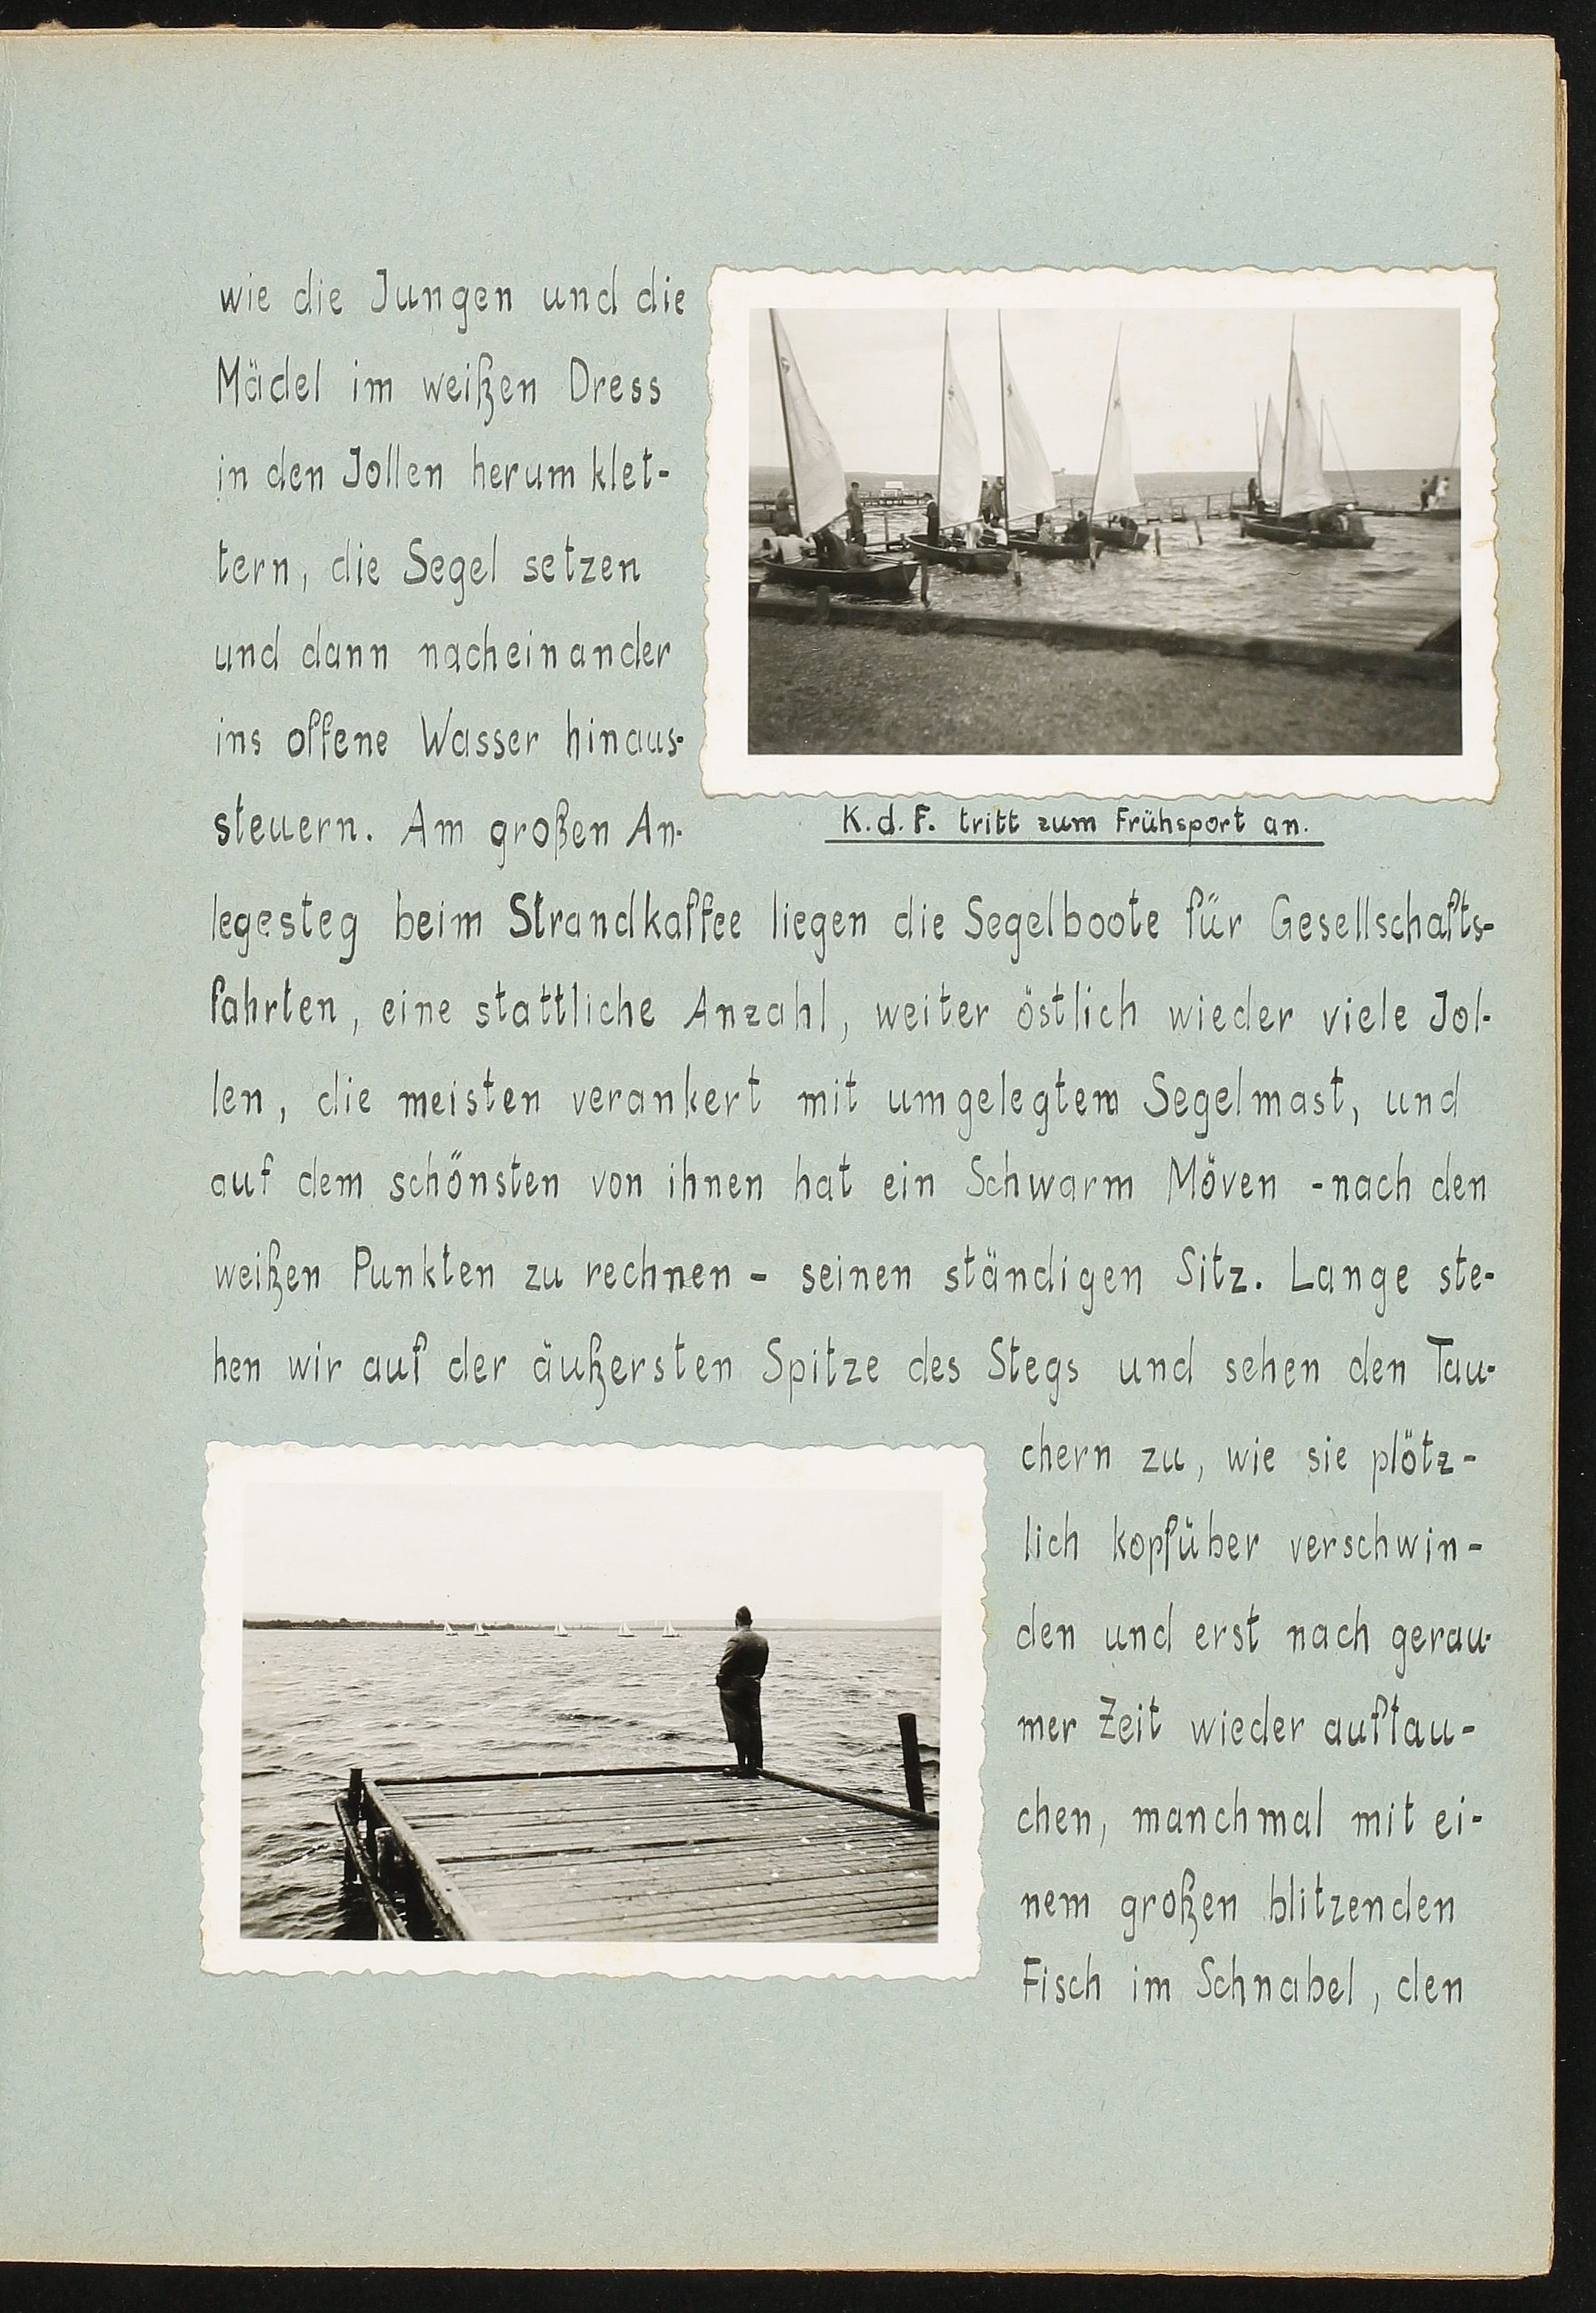 wie die Jungen und die
Mädel im weißen Dress
in den Jollen herumklet-
tern, die Segel setzen
und dann nacheinander
ins offene Wasser hinaus-
steuern. Am großen An-
K.d.F. tritt zum Frühsport an.
legesteg beim Strandkaffee liegen die Segelboote für Gesellschafts-
fahrten, eine stattliche Anzahl, weiter östlich wieder viele Jol-
len, die meisten verankert mit umgelegtem Segelmast, und
auf dem schönsten von ihnen hat ein Schwarm Möven - nach den
weißen Punkten zu rechnen - seinen ständigen Sitz. Lange ste-
hen wir auf der äußersten Spitze des Stegs und sehen den Tau-
chern zu, wie sie plötz-
lich kopfüber verschwin-
den und erst nach gerau-
mer Zeit wieder auftau-
chen, manchmal mit ei-
nem großen blitzenden
Fisch im Schnabel, den